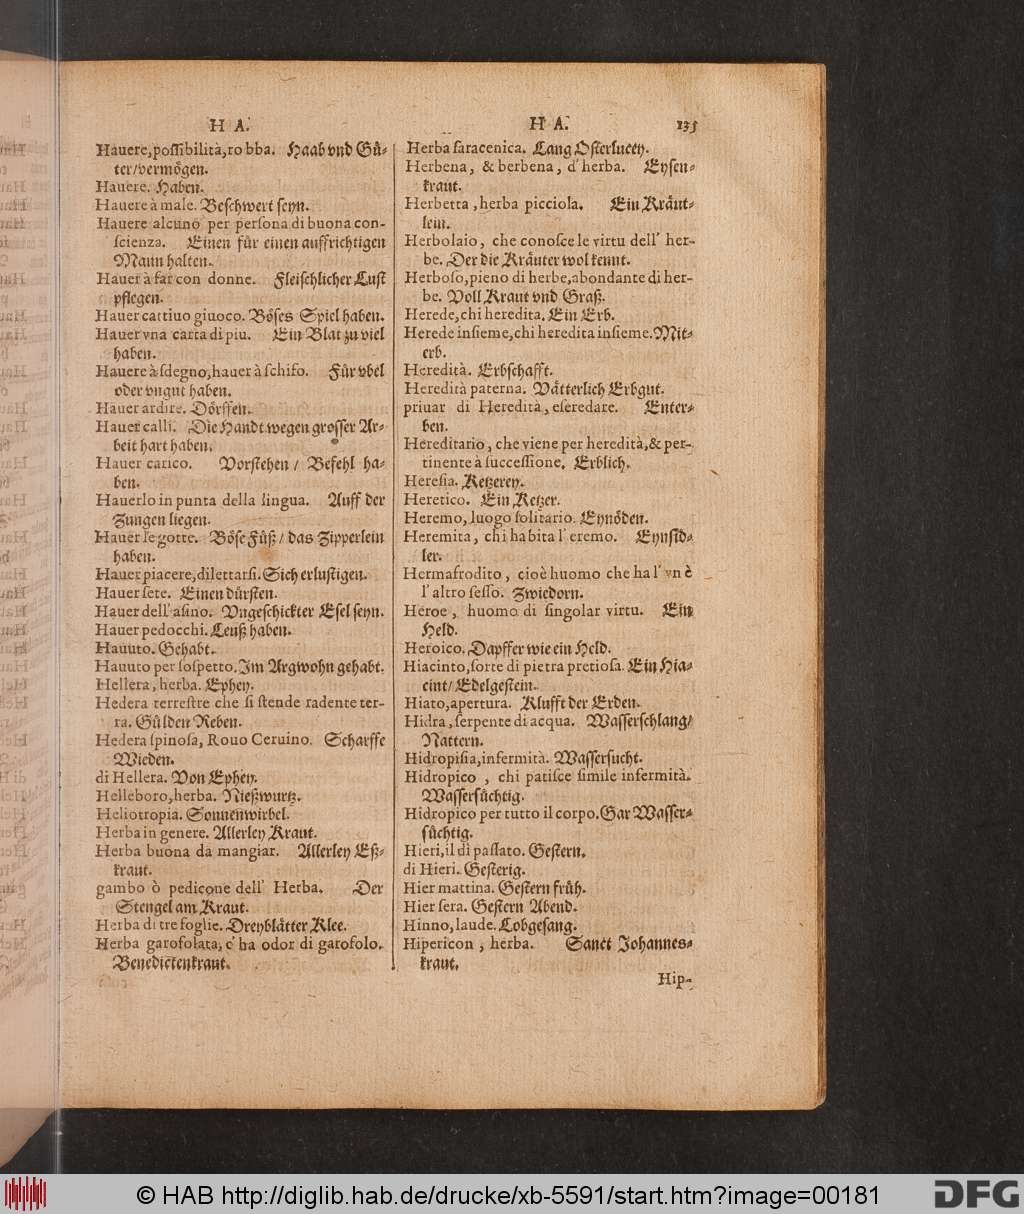 H A.
Hauere, possibilità, robba. Haab vnd Gü-
ter/vermögen.
Hauere. Haben.
Hauere à male. Beschwert seyn.
Hauere alcuno per persona di buona con-
scienza. Einen für einen auffrichtigen
Mann halten.
Hauer à far con donne. Fleischlicher Lust
pflegen.
Hauer cattiuo giuoco. Böses Spiel haben.
Hauer vna carta di piu. Ein Blat zu viel
haben.
Hauere à sdegno, hauer à schifo. Für vbel
oder vngut haben.
Hauer ardire. Dörffen.
Hauer calli. Die Handt wegen grosser Ar-
beit hart haben.
Hauer carico. Vorstehen / Befehl ha-
ben.
Hauerlo in punta della lingua. Auff der
Zungen liegen.
Hauer le gotte. Böse Füß / das Zipperlein
haben.
Hauer piacere, dilettarsi. Sich erlustigen.
Hauer sete. Einen dürsten.
Hauer dell' asino. Vngeschickter Esel seyn.
Hauer pedocchi. Leuß haben.
Hauuto. Gehabt.
Hauuto per sospetto. Im Argwohn gehabt.
Hellera, herba. Ephey.
Hedera terrestre che si stende radente ter-
ra. Gülden Reben.
Hedera spinosa, Rouo Ceruino. Scharffe
Wieden.
di Hellera. Von Ephey.
Helleboro, herba. Nießwurtz.
Heliotropia. Sonnenwirbel.
Herba in genere. Allerley Kraut.
Herba buona da mangiar. Allerley Eß-
kraut.
gambo ò pedicone dell' Herba. Der
Stengel am Kraut.
Herba di tre foglie. Dreyblätter Klee.
Herba garofolata, c' ha odor di garofolo.
Benedictenkraut.
H A. 135
Herba saracenica. Lang Osterlucey.
Herbena, & berbena, d' herba. Eysen-
kraut.
Herbetta, herba picciola. Ein Kräut-
lein.
Herbolaio, che conosce le virtu dell' her-
be. Der die Kräuter wol kennt.
Herboso, pieno di herbe, abondante di her-
be. Voll Kraut vnd Graß.
Herede, chi heredita. Ein Erb.
Herede insieme, chi heredita insieme. Mit-
erb.
Heredità. Erbschafft.
Heredità paterna. Vätterlich Erbgut.
priuar di Heredità, eseredare. Enter-
ben.
Hereditario, che viene per heredità, & per-
tinente à successione. Erblich.
Heresia. Ketzerey.
Heretico. Ein Ketzer.
Heremo, luogo solitario. Eynöden.
Heremita, chi habita l' eremo. Eynsid-
ler.
Hermafrodito, cioè huomo che ha l' vn è
l' altro sesso. Zwiedorn.
Heroe, huomo di singolar virtu. Ein
Held.
Heroico. Dapffer wie ein Held.
Hiacinto, sorte di pietra pretiosa. Ein Hia-
cint/ Edelgestein.
Hiato, apertura. Klufft der Erden.
Hidra, serpente di acqua. Wasserschlang/
Nattern.
Hidropisia, infermità. Wassersucht.
Hidropico, chi patisce simile infermità.
Wassersüchtig.
Hidropico per tutto il corpo. Gar Wasser-
süchtig.
Hieri, il dì passato. Gestern.
di Hieri. Gesterig.
Hier mattina. Gestern früh.
Hier sera. Gestern Abend.
Hinno, laude. Lobgesang.
Hipericon, herba. Sanct Johannes-
kraut.
Hip-
© HAB http://diglib.hab.de/drucke/xb-5591/start.htm?image=00181
DFG